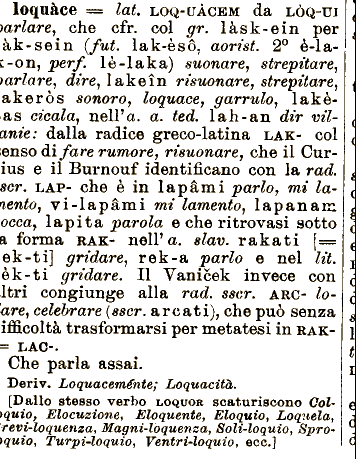 loquàce = lat. LOQ-UÀCEM da LÒQ-UI
parlare, che cfr. col gr. làsk-ein per
làk-sein (fut. lak-èsô, aorist. 2° è-la-
k-on, perf. lè-laka) suonare, strepitare,
parlare, dire, lakeîn risuonare, strepitare,
lakeròs sonoro, loquace, garrulo, lakè-
tas cicala, nell'a. a. ted. lah-an dir vil-
lanie: dalla radice greco-latina LAK- col
senso di fare rumore, risuonare, che il Cur-
tius e il Burnouf identificano con la rad.
sscr. LAP- che è in lapâmi parlo, mi la-
mento, vi-lapâmi mi lamento, lapanam
bocca, lapita parola e che ritrovasi sotto
la forma RAK- nell'a. slav. rakati [=
rek-ti] gridare, rek-a parlo e nel lit.
rèk-ti gridare. Il Vaniček invece con
altri congiunge alla rad. sscr. ARC- lo-
dare, celebrare (sscr. arcati), che può senza
difficoltà trasformarsi per metatesi in RAK-
= LAC-.
Che parla assai.
Deriv. Loquaceménte; Loquacità.
[Dallo stesso verbo LOQUOR scaturiscono Col-
loquio, Elocuzione, Eloquente, Eloquio, Loquela,
Brevi-loquenza, Magni-loquenza, Soli-loquio, Spro-
loquio, Turpi-loquio, Ventri-loquio, ecc.]